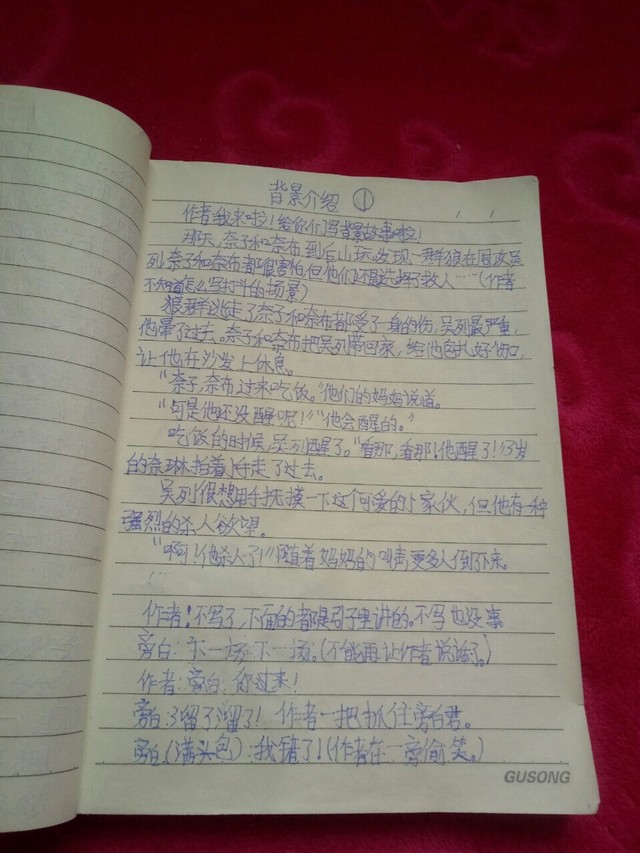 背景介绍 ①
作者:我来啦!给你们写背景故事啦!
那天,奈子和奈布到后山玩,发现一群狼在围攻吴
列,奈子和奈布都很害怕,但他们还是选择了救人……(作者
不知道怎么写打斗的场景)
狼群逃走了,奈子和奈布都受了一身的伤,吴列最严重,
他晕了过去。奈子和奈布把吴列带回家,给他包扎好伤口,
让他在沙发上休息。
“奈子,奈布,过来吃饭。”他们的妈妈说道。
“可是他还没醒呢!”“他会醒的。”
吃饭的时候,吴列醒了。“看那,看那!他醒了!”3岁
的奈琳拍着小手走了过去。
吴列很想用手抚摸一下这个可爱的小家伙,但他有一种
强烈的杀人欲望。
“啊!他杀人了!”随着妈妈的叫声,更多人倒下来。
作者:不写了,下面的都是君子里讲的。不写也没事
旁白:下一场,下一场。(不能再让作者说话了。)
作者:旁白,你过来!
旁白:溜了溜了! 作者一把抓住旁白君。
旁白(满头包):我错了!(作者在一旁偷笑。)
GUSONG